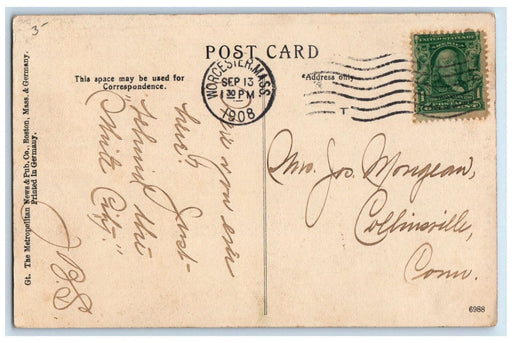 5-
POST CARD
This space may be used for
Correspondence.
*Address only
WORCESTER, MASS.
SEP 13
1 30 PM
1908
Gt. The Metropolitan News & Pub. Co., Boston, Mass. & Germany.
Printed in Germany.
you ever
here? Just
behind the
"White City."
Mrs. Jos. Mongeau,
Collinsville,
Conn.
6988